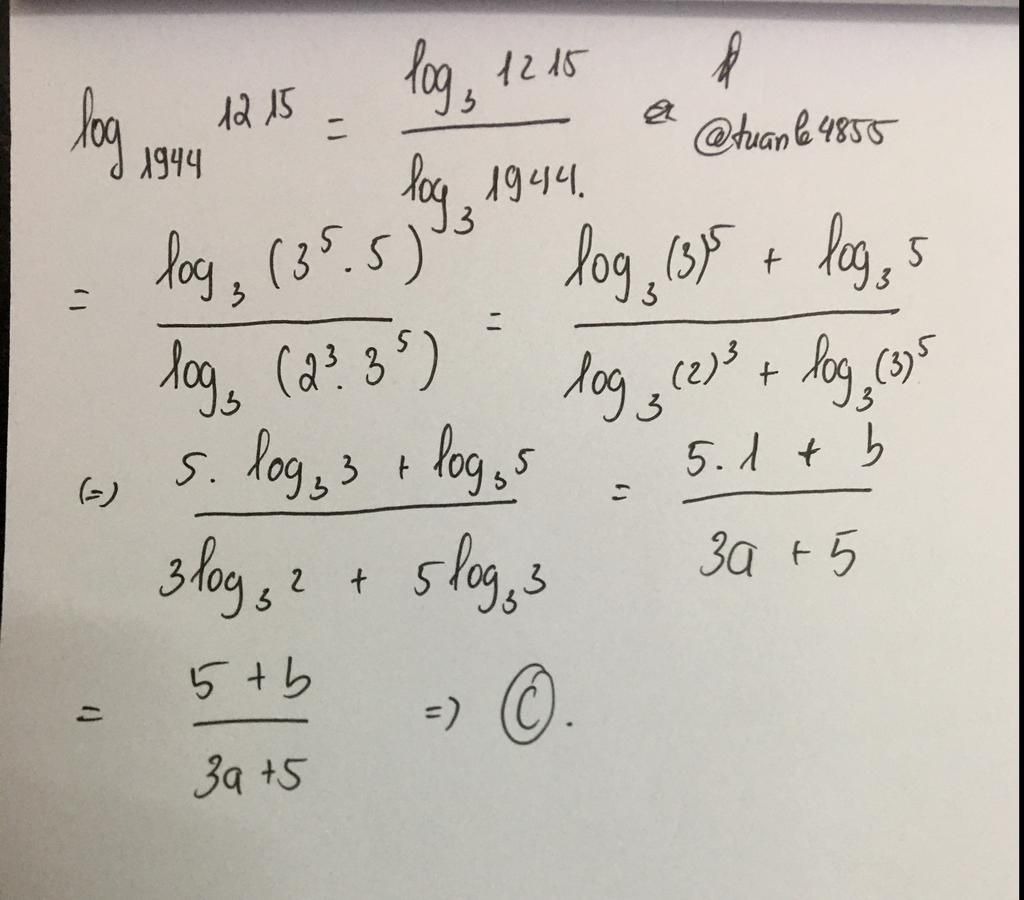 log₁₉₄₄ 1215 = log₃ 1215 / log₃ 1944.
@tuanle4855
= log₃ (3⁵ . 5) / log₃ (2³. 3⁵) = log₃ (3)⁵ + log₃ 5 / log₃ (2)³ + log₃ (3)⁵
(=) 5. log₃ 3 + log₃ 5 / 3log₃ 2 + 5log₃ 3 = 5.1 + b / 3a + 5
= 5 + b / 3a + 5 => C.